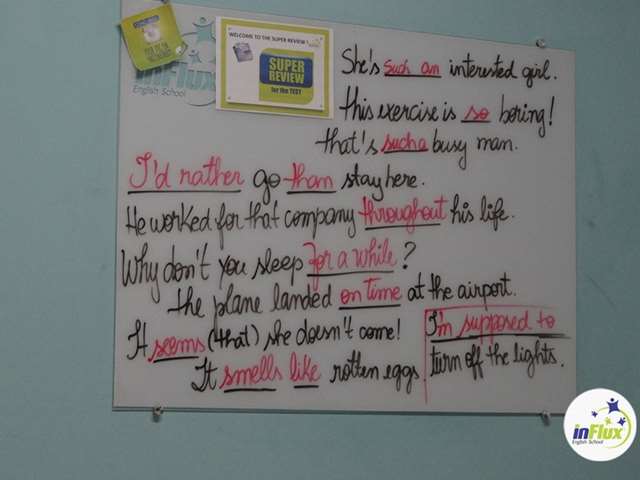 inFlux
English School
WELCOME TO THE SUPER REVIEW!
SUPER
REVIEW
for the TEST
She's such an interested girl.
this exercise is so boring!
that's such a busy man.
I'd rather go than stay here.
He worked for that company throughout his life.
Why don't you sleep for a while?
the plane landed on time at the airport.
It seems (that) she doesn't come!
I'm supposed to
turn off the lights.
It smells like rotten eggs
inFlux
English School